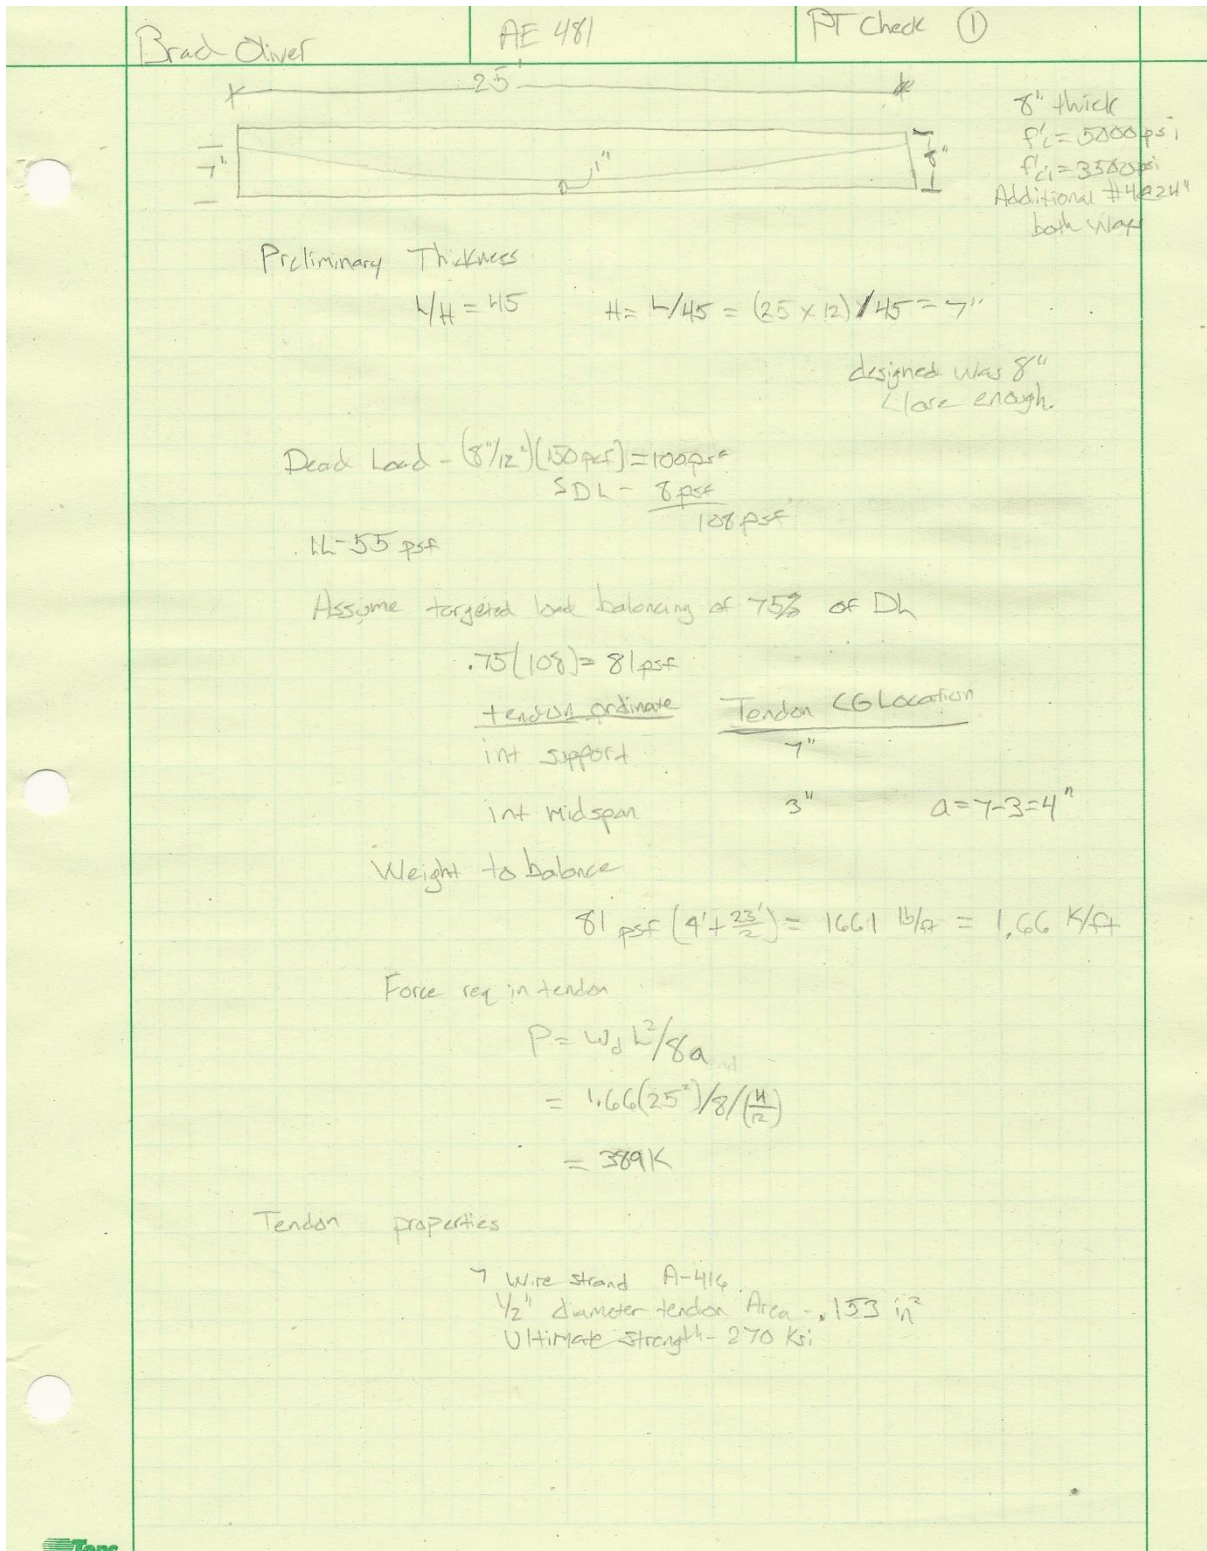 Brad Oliver
AE 481
PT Check ①
25'
8" thick
f'c = 5000 psi
f'ci = 3500 psi
Additional #4@24"
both ways
7"
1"
8"
Preliminary Thickness
L/H = 45 H = L/45 = (25 x 12)/45 = 7"
designed was 8"
Close enough.
Dead Load - (8"/12")(150 pcf) = 100 psf
SDL - 8 psf
108 psf
LL-55 psf
Assume targeted load balancing of 75% of DL
.75(108) = 81 psf
tendon ordinate Tendon CG Location
int support 7"
int midspan 3" a = 7-3 = 4"
Weight to balance
81 psf (9' + 23'/2) = 1661 lb/ft = 1.66 K/ft
Force req in tendon
P = wd L²/8a
= 1.66(25²)/8/(4/12)
= 389K
Tendon properties
7 Wire strand A-416
1/2" diameter tendon Area - .153 in²
Ultimate Strength - 270 Ksi
Tops